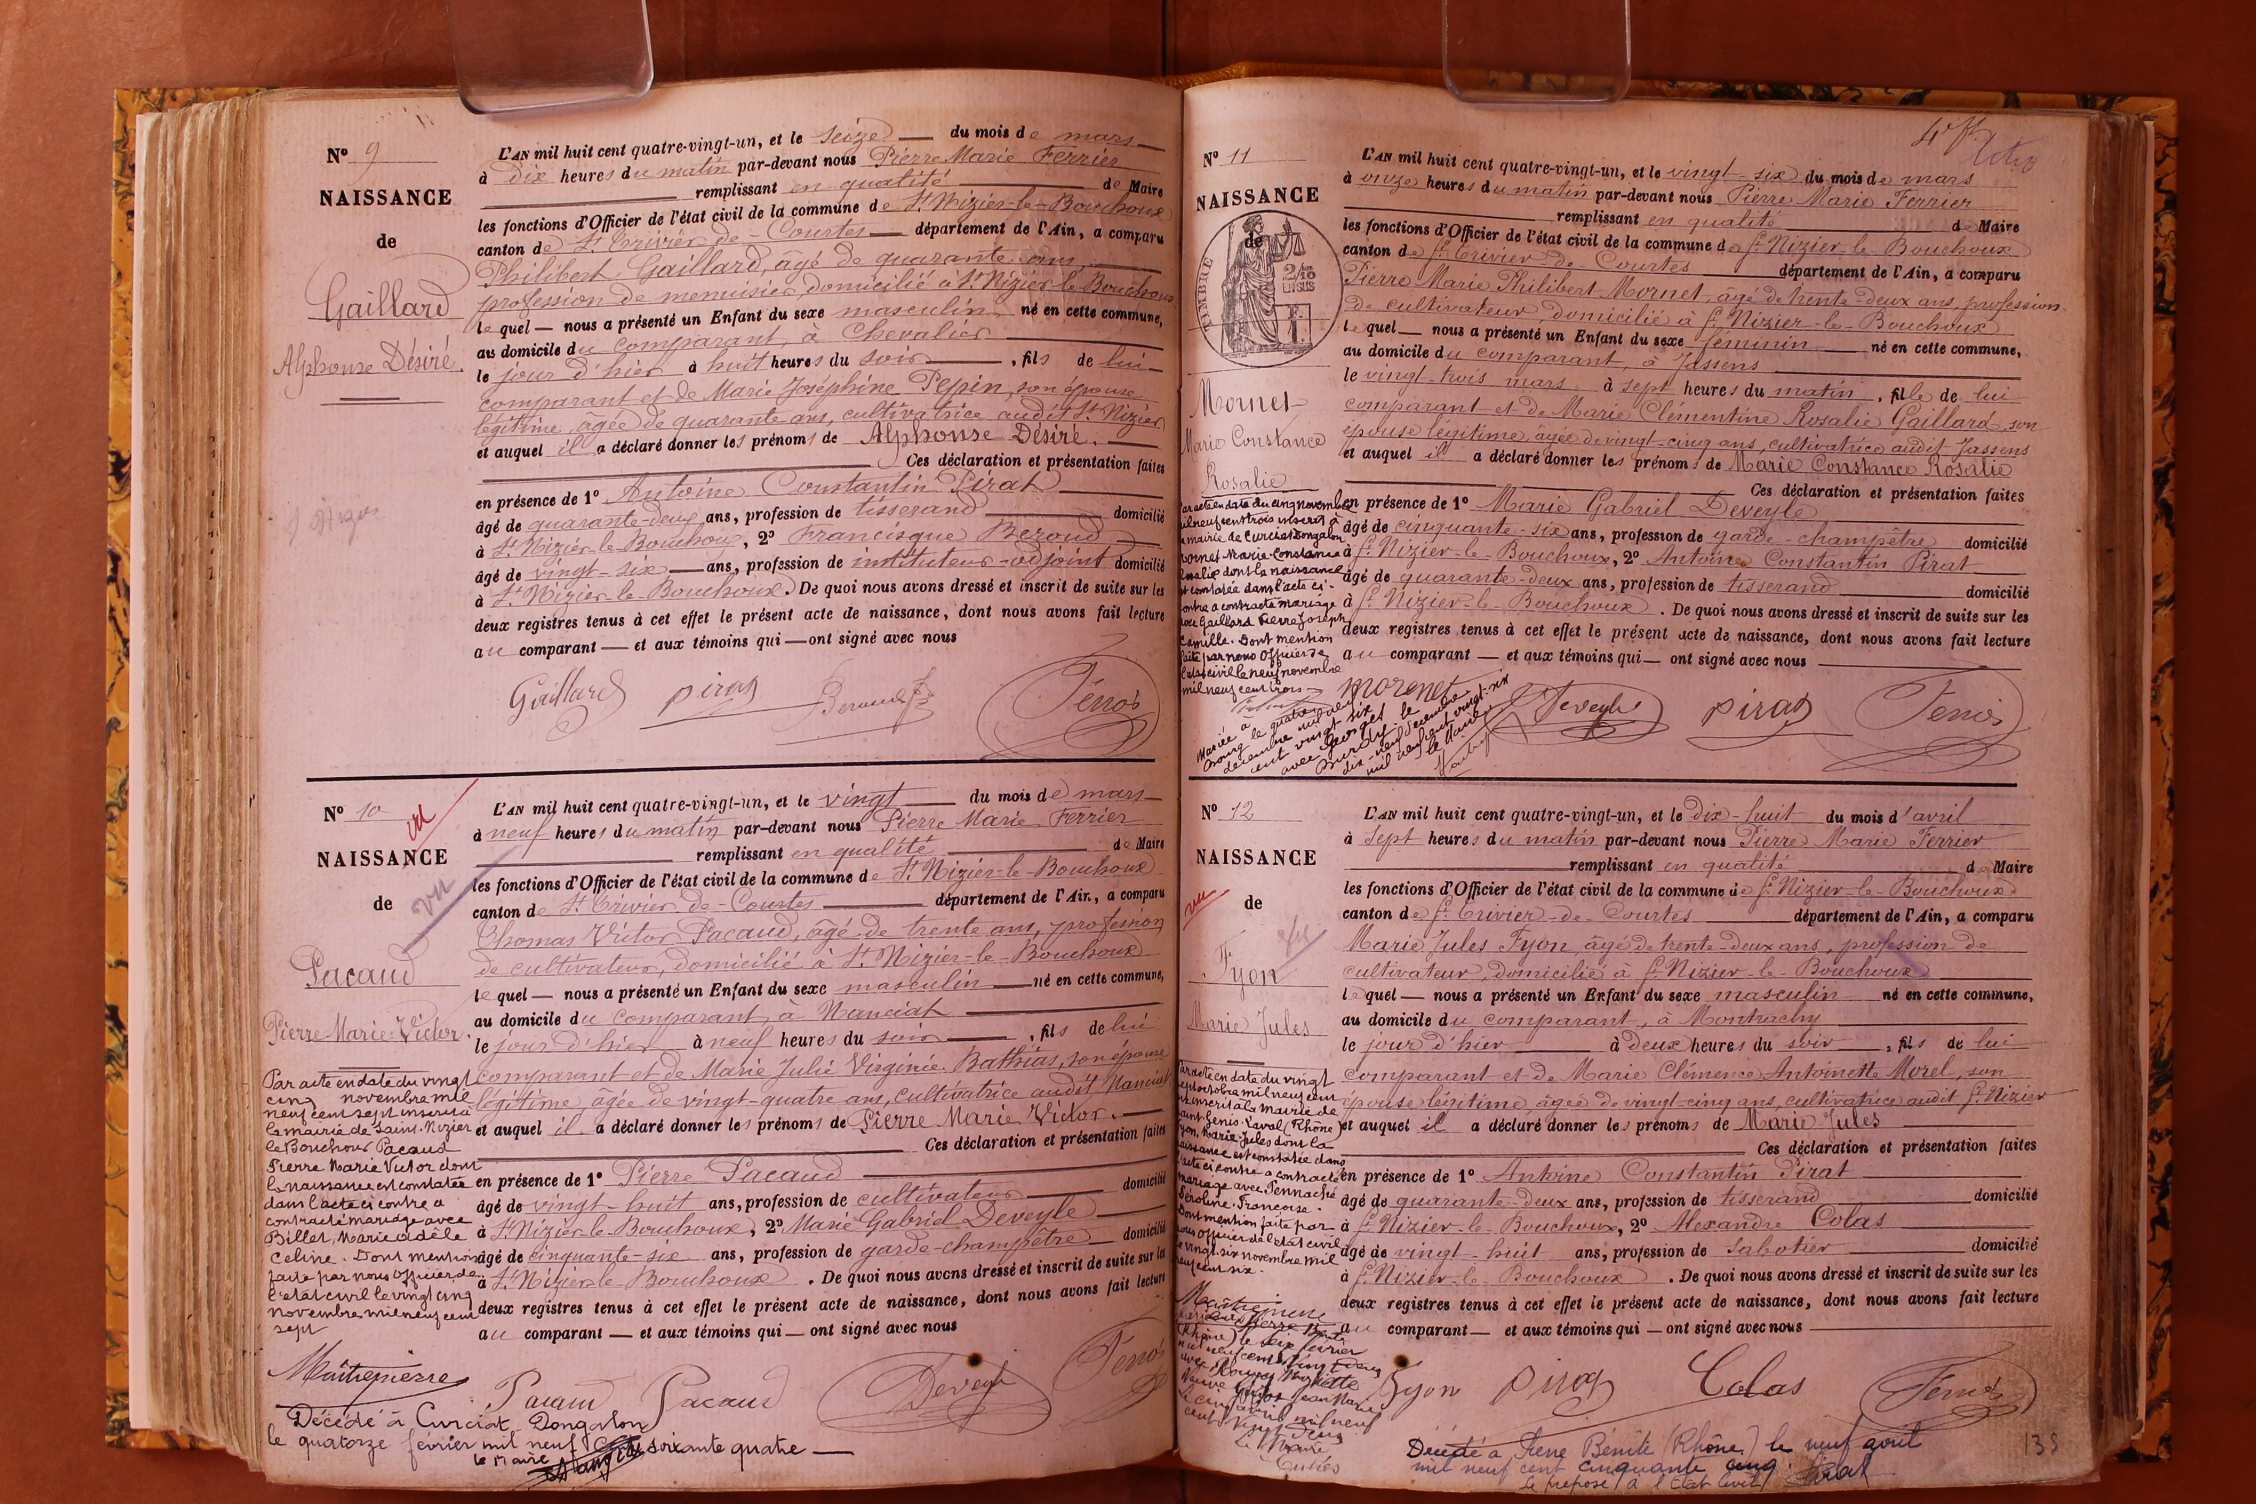 N° 9
NAISSANCE
de
Gaillard
Alphonse Désiré.
L'AN mil huit cent quatre-vingt-un, et le seize du mois de mars
à dix heures du matin par-devant nous Pierre Marie Ferrier
remplissant en qualité de Maire
les fonctions d'Officier de l'état civil de la commune de St Nizier-le-Bouchoux
canton de St Trivier-de-Courtes département de l'Ain, a comparu
Philibert Gaillard, âgé de quarante ans,
profession de menuisier, domicilié à St Nizier-le-Bouchoux
lequel nous a présenté un Enfant du sexe masculin né en cette commune,
au domicile du comparant, à Chevalier
le jour d'hier à huit heures du soir, fils de lui
comparant et de Marie Joséphine Pepin, son épouse
légitime, âgée de quarante ans, cultivatrice audit St Nizier
et auquel il a déclaré donner les prénoms de Alphonse Désiré.
Ces déclaration et présentation faites
en présence de 1° Antoine Constantin Pirat
âgé de quarante-deux ans, profession de tisserand domicilié
à St Nizier-le-Bouchoux, 2° Francisque Beroud
âgé de vingt-six ans, profession de instituteur-adjoint domicilié
à St Nizier-le-Bouchoux. De quoi nous avons dressé et inscrit de suite sur les
deux registres tenus à cet effet le présent acte de naissance, dont nous avons fait lecture
au comparant et aux témoins qui ont signé avec nous
Gaillard Pirat Beroud
N° 10
vu
NAISSANCE
de
vu
Pacaud
Pierre Marie Victor.
L'AN mil huit cent quatre-vingt-un, et le vingt du mois de mars
à neuf heures du matin par-devant nous Pierre Marie Ferrier
remplissant en qualité de Maire
les fonctions d'Officier de l'état civil de la commune de St Nizier-le-Bouchoux
canton de St Trivier-de-Courtes département de l'Ain, a comparu
Thomas Victor Pacaud, âgé de trente ans, profession
de cultivateur, domicilié à St Nizier-le-Bouchoux
lequel nous a présenté un Enfant du sexe masculin né en cette commune,
au domicile du comparant, à Nanciat
le jour d'hier à neuf heures du soir, fils de lui
comparant et de Marie Julie Virginie Bathias, son épouse
légitime âgée de vingt-quatre ans, cultivatrice audit Nanciat
et auquel il a déclaré donner les prénoms de Pierre Marie Victor.
Ces déclaration et présentation faites
en présence de 1° Pierre Pacaud
âgé de vingt-huit ans, profession de cultivateur domicilié
à St Nizier-le-Bouchoux, 2° Marie Gabriel Deveyle
âgé de cinquante-six ans, profession de garde-champêtre domicilié
à St Nizier-le-Bouchoux. De quoi nous avons dressé et inscrit de suite sur les
deux registres tenus à cet effet le présent acte de naissance, dont nous avons fait lecture
au comparant et aux témoins qui ont signé avec nous
Par acte en date du vingt
cinq novembre mil
neuf cent sept inscrit à
la mairie de Saint-Nizier
le Bouchoux Pacaud
Pierre Marie Victor dont
la naissance est constatée
dans l'acte ci contre a
contracté mariage avec
Billet, Marie Adèle
Céline. Dont mention
faite par nous Officier de
l'état civil le vingt cinq
novembre mil neuf cent
sept
Maîtrepierre
Pacaud Pacaud Deveyle
Décédé à Curciat Dongalon
le quatorze février mil neuf cent soixante quatre
le Maire
N° 11
NAISSANCE
de
TIMBRE
Mornet
Marie Constance
Rosalie
L'AN mil huit cent quatre-vingt-un, et le vingt-six du mois de mars
à onze heures du matin par-devant nous Pierre Marie Ferrier
remplissant en qualité de Maire
les fonctions d'Officier de l'état civil de la commune de St Nizier-le-Bouchoux
canton de St Trivier-de-Courtes département de l'Ain, a comparu
Pierre Marie Philibert Mornet, âgé de trente-deux ans, profession
de cultivateur domicilié à St Nizier-le-Bouchoux
lequel nous a présenté un Enfant du sexe féminin né en cette commune,
au domicile du comparant, à Jassens
le vingt-trois mars à sept heures du matin, fille de lui
comparant et de Marie Clémentine Rosalie Gaillard, son
épouse légitime, âgée de vingt-cinq ans, cultivatrice audit Jassens
et auquel il a déclaré donner les prénoms de Marie Constance Rosalie
Ces déclaration et présentation faites
en présence de 1° Marie Gabriel Deveyle
âgé de cinquante-six ans, profession de garde-champêtre domicilié
à St Nizier-le-Bouchoux, 2° Antoine Constantin Pirat
âgé de quarante-deux ans, profession de tisserand domicilié
à St Nizier-le-Bouchoux. De quoi nous avons dressé et inscrit de suite sur les
deux registres tenus à cet effet le présent acte de naissance, dont nous avons fait lecture
au comparant et aux témoins qui ont signé avec nous
Par acte en date du cinq novembre
mil neuf cent trois inscrit à
la mairie de Curciat Dongalon
Mornet Marie Constance
Rosalie dont la naissance
est constatée dans l'acte ci-
contre a contracté mariage
avec Gaillard Pierre Joseph
Camille. Dont mention
faite par nous Officier de
l'état civil le neuf novembre
mil neuf cent trois
Mariée à
le quatre
décembre mil neuf
cent vingt six
avec Georges
le
dix-neuf décembre
mil neuf cent vingt-six
le Maire
Mornet Deveyle Pirat
N° 12
NAISSANCE
vu
de
Fyon
Marie Jules
L'AN mil huit cent quatre-vingt-un, et le dix-huit du mois d'avril
à sept heures du matin par-devant nous Pierre Marie Ferrier
remplissant en qualité de Maire
les fonctions d'Officier de l'état civil de la commune de St Nizier-le-Bouchoux
canton de St Trivier-de-Courtes département de l'Ain, a comparu
Marie Jules Fyon âgé de trente-deux ans, profession de
cultivateur, domicilié à St Nizier-le-Bouchoux
lequel nous a présenté un Enfant du sexe masculin né en cette commune,
au domicile du comparant, à Montrachy
le jour d'hier à deux heures du soir, fils de lui
comparant et de Marie Clémence Antoinette Morel, son
épouse légitime âgée de vingt-cinq ans, cultivatrice audit St Nizier
et auquel il a déclaré donner les prénoms de Marie Jules
Ces déclaration et présentation faites
en présence de 1° Antoine Constantin Pirat
âgé de quarante-deux ans, profession de tisserand domicilié
à St Nizier-le-Bouchoux, 2° Alexandre Colas
âgé de vingt-huit ans, profession de Sabotier domicilié
à St Nizier-le-Bouchoux. De quoi nous avons dressé et inscrit de suite sur les
deux registres tenus à cet effet le présent acte de naissance, dont nous avons fait lecture
au comparant et aux témoins qui ont signé avec nous
Par acte en date du vingt
sept octobre mil neuf cent
six inscrit à la mairie de
Saint-Genis-Laval (Rhône)
Fyon, Marie Jules dont la
naissance est constatée dans
l'acte ci contre a contracté
mariage avec
Françoise.
Dont mention faite par
nous officier de l'état civil
le vingt-six novembre mil
neuf cent six.
Maîtrepierre
(Rhône) le six février
mil neuf cent vingt deux
avril mil neuf
cent vingt deux
Le Maire
Fyon Pirat Colas
Décédé à Pierre Bénite (Rhône) le neuf août
mil neuf cent cinquante cinq.
Le préposé à l'Etat Civil
135